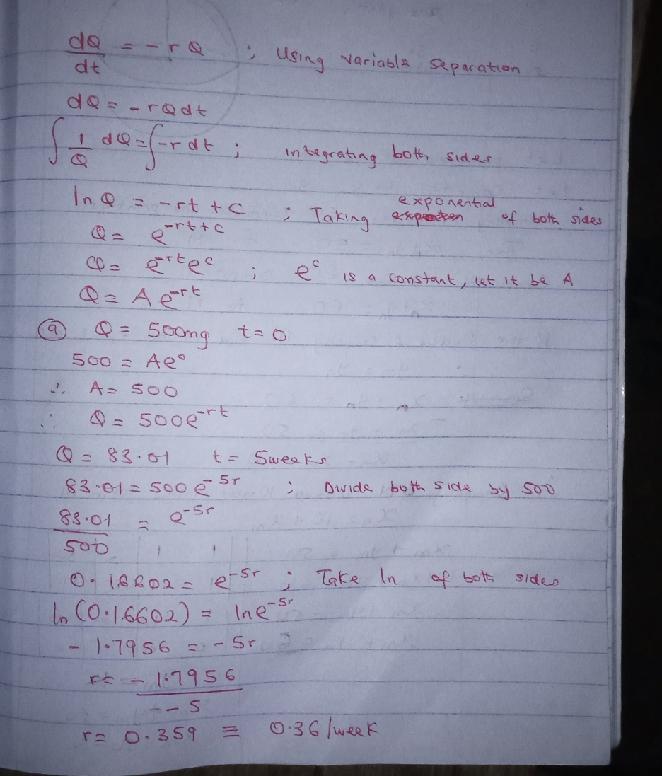 dQ/dt = -rQ ; Using variable separation
dQ = -rQdt
∫ 1/Q dQ = ∫ -r dt ; integrating both sides
ln Q = -rt + c ; Taking exponential of both sides
Q = e^-rt+c
Q = e^-rt e^c ; e^c is a constant, let it be A
Q = A e^-rt
(a) Q = 500mg t = 0
500 = Ae^0
∴ A = 500
∴ Q = 500e^-rt
Q = 83.01 t = 5weeks
83.01 = 500 e^-5r ; Divide both side by 500
83.01/500 = e^-5r
0.16602 = e^-5r ; Take ln of both sides
ln (0.16602) = lne^-5r
-1.7956 = -5r
r = -1.7956/-5
r = 0.359 ≡ 0.36/week